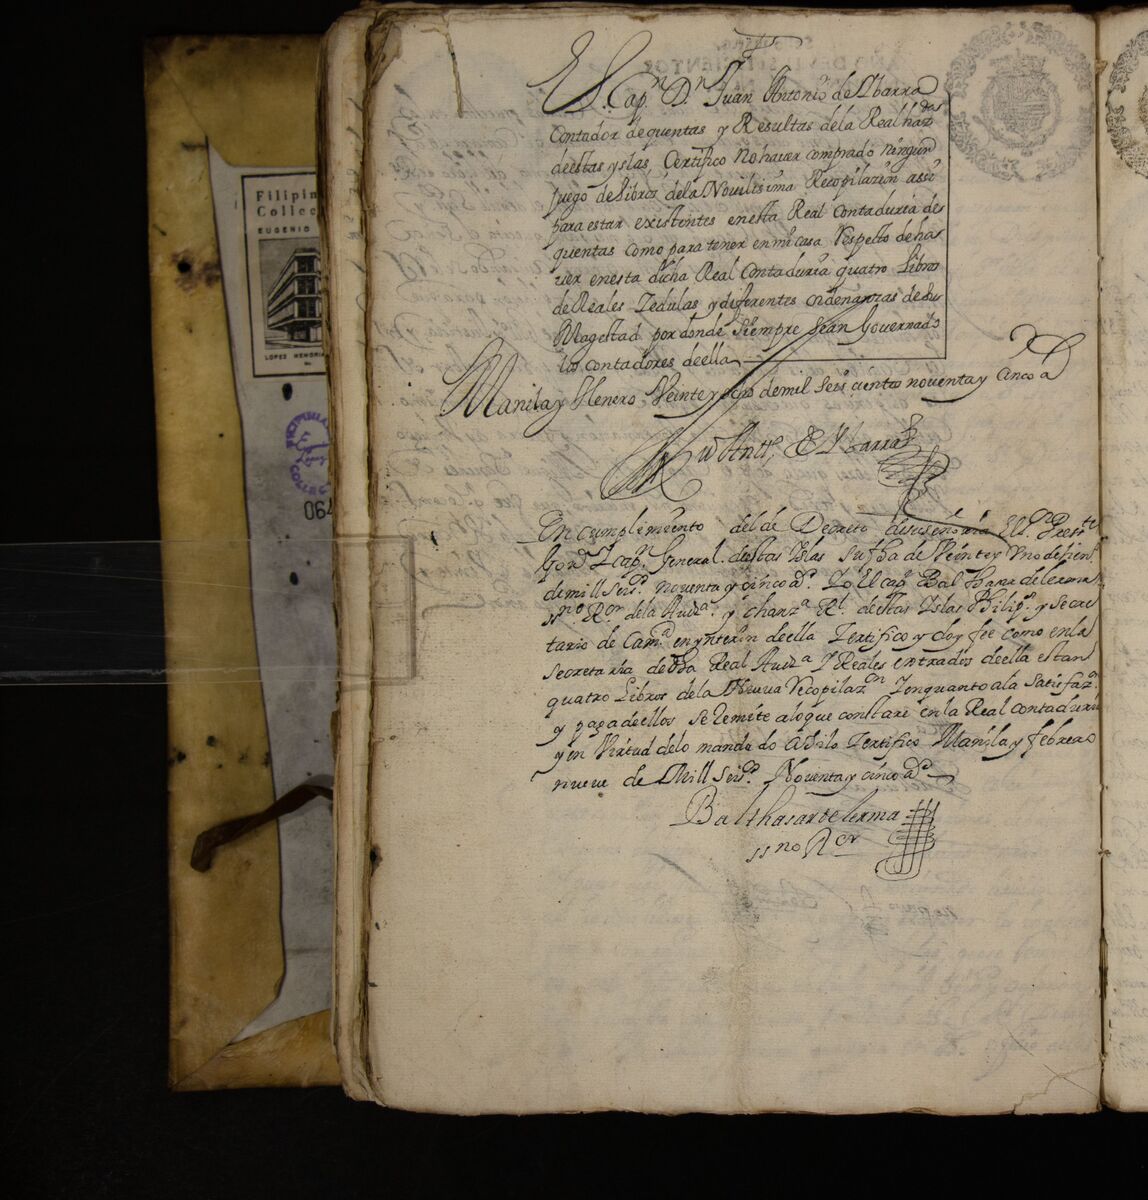 El Cap.n D.n Juan Antonio de Ybarra
Contador de quentas y Resultas dela Real haz.da
de estas yslas Certifico No haver comprado ningun
juego de Libros dela Novilisima Recopilazion assi
para estar existentes enesta Real Contaduria de
quentas como para tener en mi casa Respecto de ha
ver enesta dicha Real Contaduria quatro Libros
de Reales Zedulas y diferentes ordenanzas de su
Magestad por donde siempre sean Governado
los contadores de ella
Manila y Henero Veinte y ocho de mil seis cientos noventa y cinco a
Ju.o Ant.o de Ybarra
En cumplimiento del de Decreto de su señoria El S.r Press.te
Gov.or Y cap.n General. destas Yslas su fha de Veinte y Uno del
de mill seis.s noventa y cinco a.s Yo El cap.n Balthasar de lerma
ss.no R.or dela Aud.a y chanz.a Rl. destas Yslas Philip.s y Secre
tario de Cam.a en ynterin de ella Zertifico y doy fee como en la
secretaria de dha Real Aud.a Y Reales entrados de ella estan
quatro Libros dela Nueva Recopilaz.on Y en quanto ala satisfaz.n
y paga de ellos se Remite alo que constare en la Real contaduria
y en Virtud delo mandado Assi lo Zertifico Manila y febrero
nueve de Mill seis.s Noventa y cinco a.s
Balthasar de lerma
ss.no R.or
Filipin
Collec
EUGENIO
LOPEZ MEMORIA
064